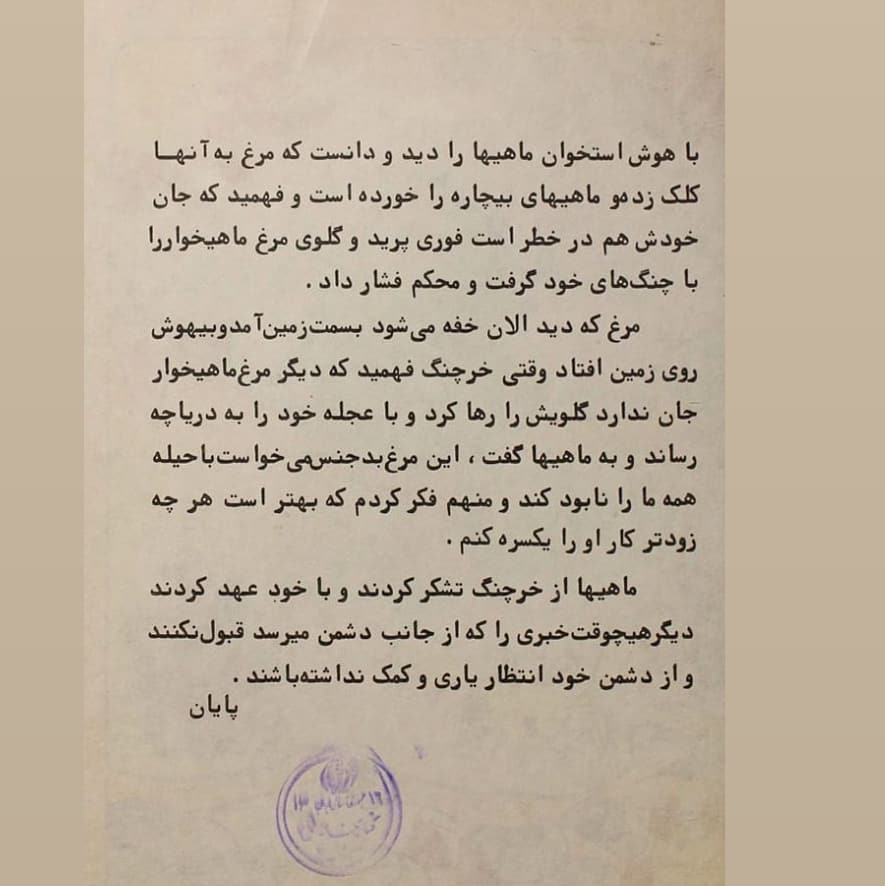 با هوش استخوان ماهیها را دید و دانست که مرغ به آنهـا
کلک زده‌و ماهیهای بیچاره را خورده است و فهمید که جان
خودش هم در خطر است فوری پرید و گلوی مرغ ماهیخواررا
با چنگ‌های خود گرفت و محکم فشار داد .
مرغ که دید الان خفه می‌شود بسمت‌زمین‌آمدوبیهوش
روی زمین افتاد وقتی خرچنگ فهمید که دیگر مرغ‌ماهیخوار
جان ندارد گلویش را رها کرد و با عجله خود را به دریاچه
رساند و به ماهیها گفت ، این مرغ‌بدجنس‌می‌خواست‌باحیله
همه ما را نابود کند و منهم فکر کردم که بهتر است هر چه
زودتر کار او را یکسره کنم .
ماهیها از خرچنگ تشکر کردند و با خود عهد کردند
دیگرهیچوقت‌خبری را که از جانب دشمن میرسد قبول‌نکنند
و از دشمن خود انتظار یاری و کمک نداشته‌باشند .
پایان